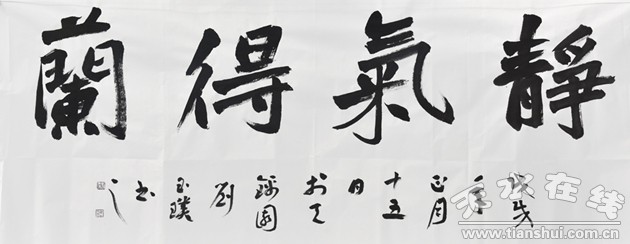 靜氣得蘭
戊戌年正月十五日於天園劉玉璞書之
天水在线
www.tianshui.com.cn